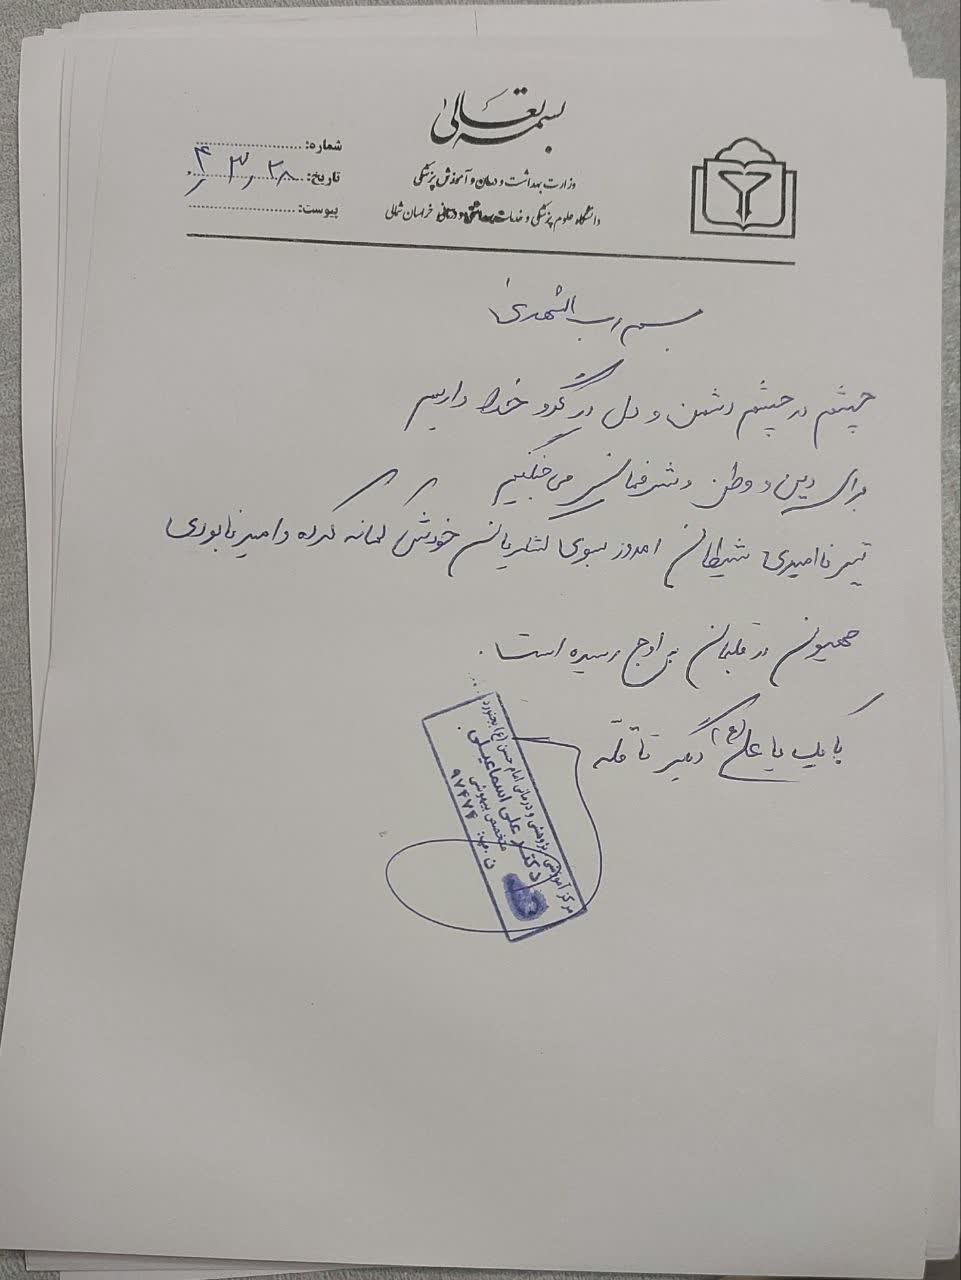 بسمه تعالی
وزارت بهداشت و درمان و آموزش پزشکی
دانشگاه علوم پزشکی و خدمات بهداشتی و درمانی خراسان شمالی
شماره:
تاریخ: ۴/۳/۲۸
پیوست:
بسم رب الشهدئ
چشم در چشم دشمن و دل در گرو خدا داریم
برای دین و وطن و شرفمان می‌جنگیم
تیر ناامیدی شیطان امروز بسوی لشکریان خودش کمانه کرده و امید نابودی
صهیون در قلبمان به اوج رسیده است.
با یک یا علی (ع) دیگر تا قله
مرکز آموزشی پژوهشی و درمانی امام حسن (ع) بجنورد
دکتر علی اسماعیلی
متخصص بیهوشی
ن.پ: ۹۷۴۷۴